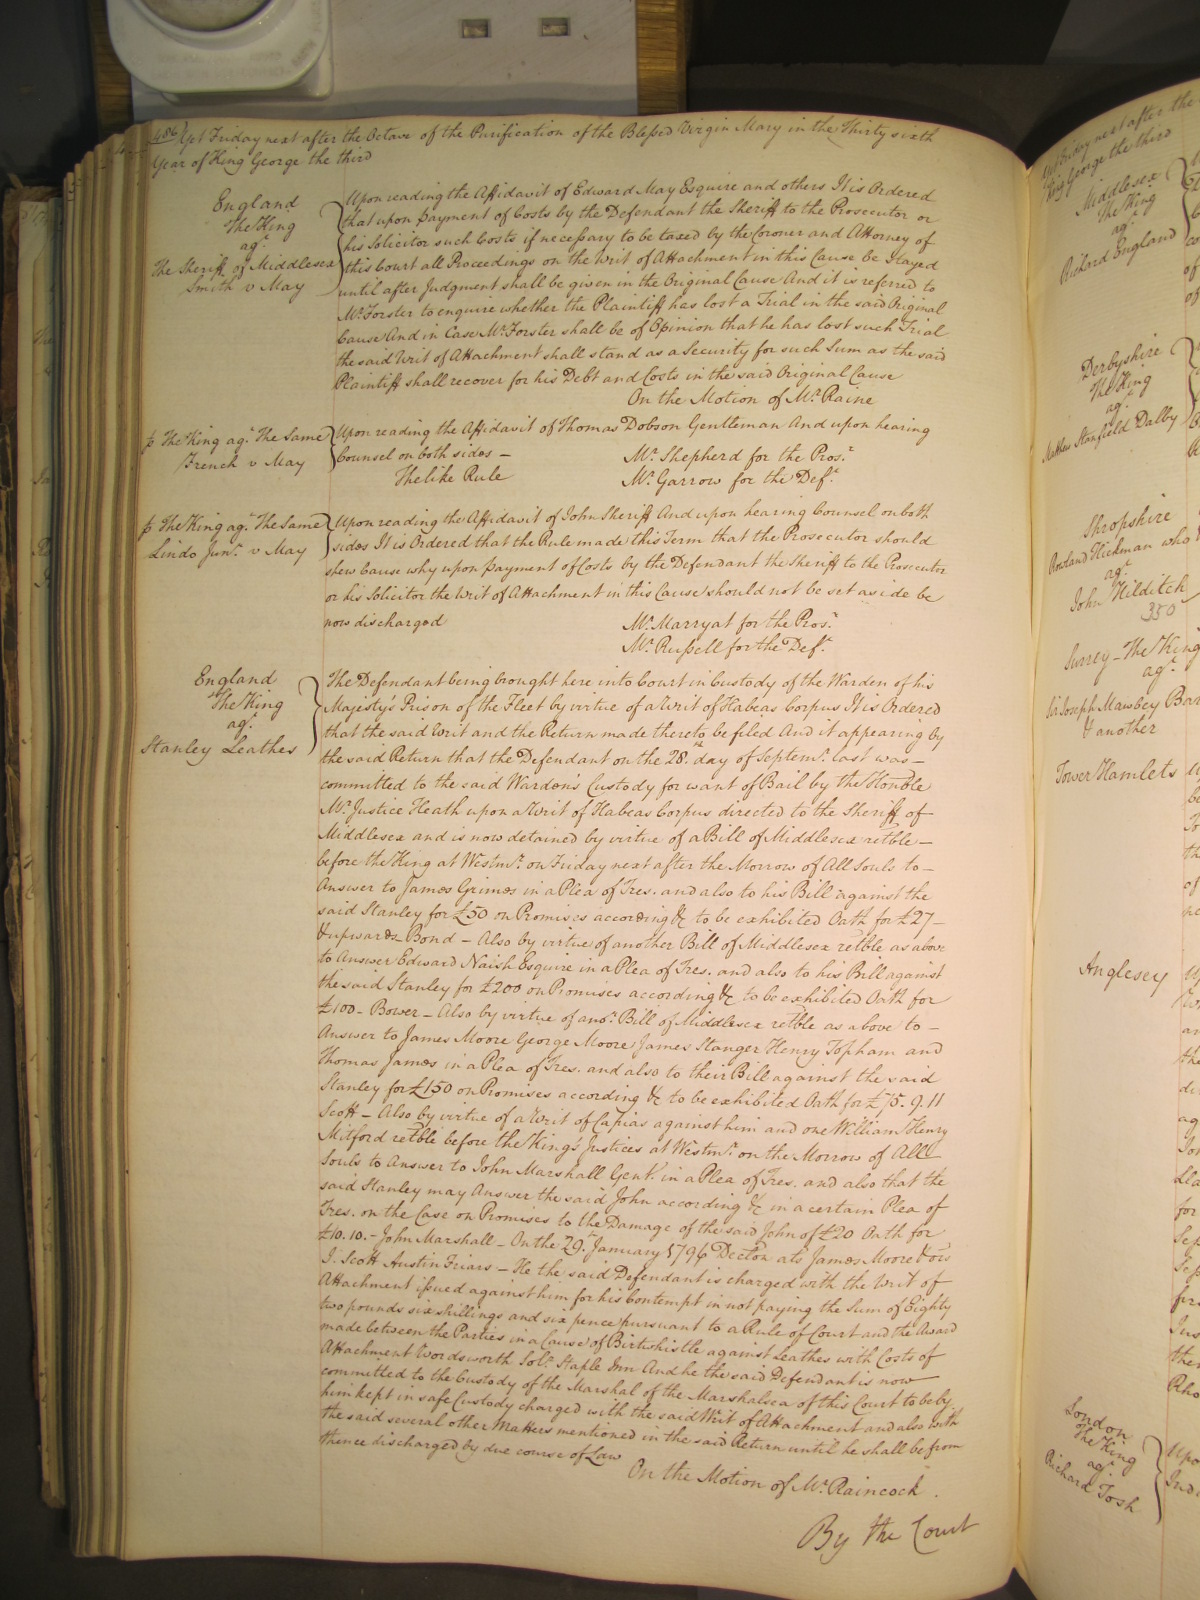 486) Yet Friday next after the Octave of the Purification of the Blessed Virgin Mary in the Thirty sixth
Year of King George the third
England
The King
agt
The Sheriff of Middlesex
Smith v May
Upon reading the Affidavit of Edward May Esquire and others It is Ordered
that upon payment of Costs by the Defendant the Sheriff to the Prosecutor or
his Solicitor such Costs if necessary to be taxed by the Coroner and Attorney of
this Court all Proceedings on the Writ of Attachment in this Cause be stayed
until after Judgment shall be given in the Original Cause And it is referred to
Mr Forster to enquire whether the Plaintiff has lost a Trial in the said Original
Cause And in Case Mr Forster shall be of Opinion that he has lost such Trial
the said Writ of Attachment shall stand as a Security for such Sum as the said
Plaintiff shall recover for his Debt and Costs in the said Original Cause
On the Motion of Mr Raine
The King agt The Same
French v May
Upon reading the Affidavit of Thomas Dobson Gentleman And upon hearing
Counsel on both sides –
The like Rule
Mr Shepherd for the Prosr
Mr Garrow for the Deft
The King agt The Same
Lindo Junr v May
Upon reading the Affidavit of John Sheriff And upon hearing Counsel on both
sides It is Ordered that the Rule made this Term that the Prosecutor should
shew Cause why upon payment of Costs by the Defendant the Sheriff to the Prosecutor
or his Solicitor the Writ of Attachment in this Cause should not be set aside be
now discharged
Mr Marryat for the Prosr
Mr Russell for the Deft
England
The King
agt
Stanley Leathes
The Defendant being brought here into Court in Custody of the Warden of his
Majesty's Prison of the Fleet by virtue of a Writ of Habeas Corpus It is Ordered
that the said Writ and the Return made thereto be filed And it appearing by
the said Return that the Defendant on the 28th day of Septemr last was –
committed to the said Warden's Custody for want of Bail by the Honble
Mr Justice Heath upon a Writ of Habeas Corpus directed to the Sheriff of
Middlesex and is now detained by virtue of a Bill of Middlesex retble –
before the King at Westmr on Friday next after the Morrow of All Souls to –
Answer to James Grimes in a Plea of Tres. and also to his Bill against the
said Stanley for £50 on Promises according &c to be exhibited Oath for £27 –
& upwards Bond – Also by virtue of another Bill of Middlesex retble as above
to Answer Edward Naish Esquire in a Plea of Tres. and also to his Bill against
the said Stanley for £200 on Promises according &c to be exhibited Oath for
£100 – Bower – Also by virtue of anor Bill of Middlesex retble as above to –
Answer to James Moore George Moore James Stanger Henry Topham and
Thomas James in a Plea of Tres. and also to their Bill against the said
Stanley for £150 on Promises according &c to be exhibited Oath for £75.9.11
Scott – Also by virtue of a Writ of Capias against him and one William Henry
Mitford retble before the King's Justices at Westmr on the Morrow of All
Souls to Answer to John Marshall Gent. in a Plea of Tres. and also that the
said Stanley may Answer the said John according &c in a certain Plea of
Tres. on the Case on Promises to the Damage of the said John of £20 Oath for
£10.10. – John Marshall – On the 29th January 1796 Decton ats James Moore & ors
J. Scott Austin Friars – He the said Defendant is charged with the Writ of
Attachment issued against him for his Contempt in not paying the Sum of Eighty
two pounds six shillings and six pence pursuant to a Rule of Court and the Award
made between the Parties in a Cause of Birtwhistle against Leathes with Costs of
Attachment Wordsworth Solr Staple Inn And he the said Defendant is now
committed to the Custody of the Marshal of the Marshalsea of this Court to be by
him kept in safe Custody charged with the said Writ of Attachment and also with
the said several other Matters mentioned in the said Return until he shall be from
thence discharged by due course of Law
On the Motion of Mr Raincock.
By the Court
Friday next after the
King George the third
Middlesex
The King
agt
Richard England
Derbyshire
The King
agt
Matthew Stanfield Dalby
Shropshire
Rowland Hickman who
agt
John Hilditch
350
Surrey – The King
agt
Sir Joseph Mawbey Bar
& another
Tower Hamlets
Anglesey
London
The King
agt
Richard Tosh